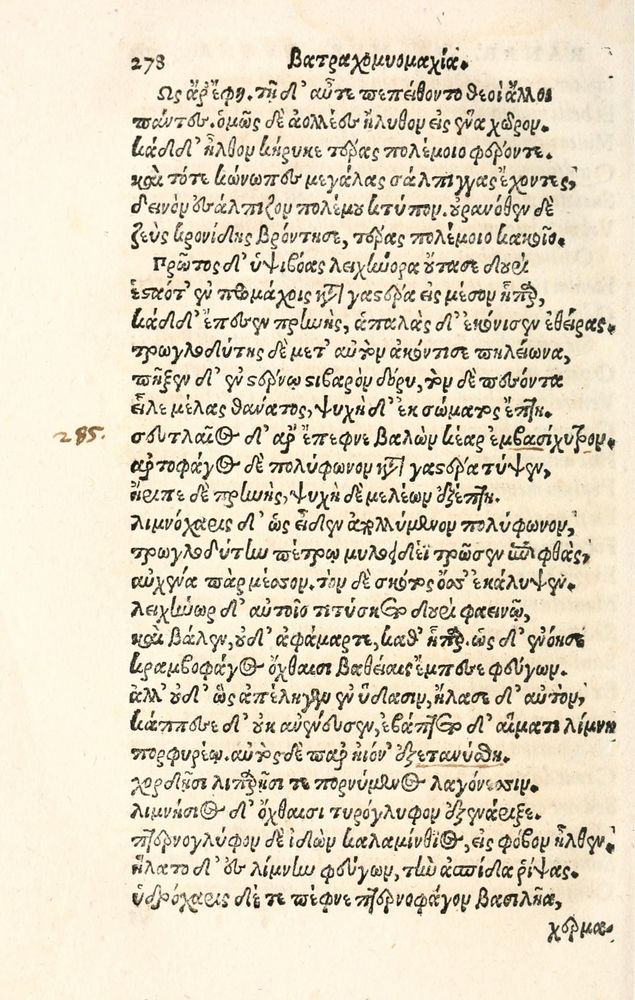 278 Βατραχομυομαχία.
Ως ἄρ ἔφη. τῇ δ' αὖτε πεπείθοντο θεοὶ ἄλλοι
πάντες. ὁμῶς δὲ ἀολλέες ἤλυθον εἰς ἕνα χῶρον.
κὰδ δ' ἦλθον κήρυκε τέρας πολέμοιο φέροντε.
καὶ τότε κώνωπες μεγάλας σάλπιγγας ἔχοντες,
δεινὸν ἐσάλπιζον πολέμου κτύπον. οὐρανόθεν δὲ
ζεὺς κρονίδης βρόντησε, τέρας πολέμοιο κακοῖο.
Πρῶτος δ' ὑψιβόας λειχήνορα οὔτασε δουρὶ
ἑσταότ' ἐν προμάχοις κατὰ γαστέρα εἰς μέσον ἧπαρ,
κὰδ δ' ἔπεσεν πρηνὴς, ἁπαλὰς δ' ἐκόνισεν ἐθείρας.
τρωγλοδύτης δὲ μετ' αὐτὸν ἀκόντισε πηλείωνα,
πῆξεν δ' ἐν στέρνῳ στιβαρὸν δόρυ, τὸν δὲ πεσόντα
εἷλε μέλας θάνατος, ψυχὴ δ' ἐκ σώματος ἔπτη.
285. σευτλαῖος δ' ἄρ ἔπεφνε βαλὼν κέαρ ἐμβασίχυτρον.
ἀρτοφάγος δὲ πολύφωνον κατὰ γαστέρα τύψεν,
ἤριπε δὲ πρηνὴς, ψυχὴ δὲ μελέων ἐξέπτη.
λιμνόχαρις δ' ὡς εἶδεν ἀπολλύμενον πολύφωνον,
τρωγλοδύτην πέτρῳ μυλοειδέϊ τρῶσεν ἐπιφθὰς,
αὐχένα παρ μέσσον. τὸν δὲ σκότος ὄσσ' ἐκάλυψεν.
λειχήνωρ δ' αὐτοῖο τιτύσκετο δουρὶ φαεινῷ,
καὶ βάλεν, οὐδ' ἀφάμαρτε, καθ' ἧπαρ. ὡς δ' ἐνόησε
κραμβοφάγος ὄχθαισι βαθείαις ἔμπεσε φεύγων.
ἀλλ' οὐδ' ὣς ἀπέληγεν ἐν ὕδασιν, ἤλασε δ' αὐτὸν,
κάππεσε δ' οὐκ ἀνένευσεν, ἐβάπτετο δ' αἵματι λίμνη
πορφυρέῳ. αὐτὸς δὲ παρ ἠϊόν' ἐξετανύσθη.
χορδῇσι λιπαρῇσι τε πορνύμενος λαγόνεσσιν.
λιμνήσιος δ' ὄχθαισι τυρόγλυφον ἐξενάριξε.
πτερνογλύφον δὲ ἰδὼν καλαμίνθιος, εἰς φόβον ἦλθεν,
ἥλατο δ' ἐς λίμνην φεύγων, τὴν ἀσπίδα ῥίψας.
ὑδρόχαρις δέ τε πέφνε πτερνοφάγον βασιλῆα,
χέρμα.